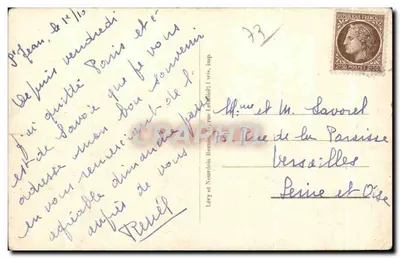 St Jean, le 1er/10
Depuis vendredi
j'ai quitté Paris et
est de Savoie que je vous
adresse mon bon souvenir
en vous remerciant de l'
agréable dimanche passé
auprès de vous
René
73
Mme et M. Savorel
rue de la Paroisse
Versailles
Seine et Oise